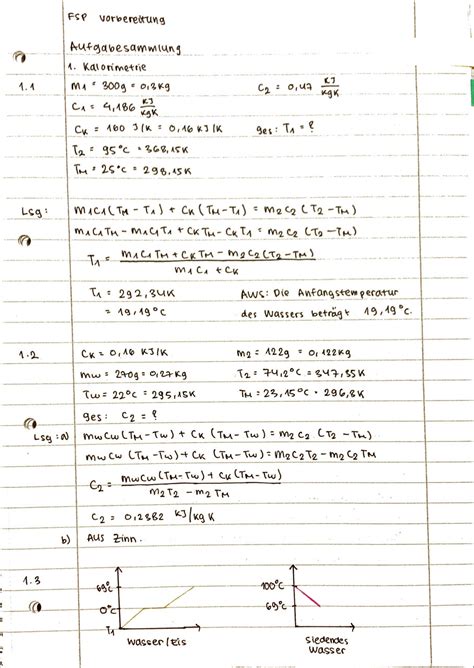 FSP Vorbereitung
Aufgabesammlung
1. Kalorimetrie
1.1 m1 = 300g = 0,3kg C2 = 0,47 KJ/kgK
C1 = 4,186 KJ/kgK
CK = 160 J/K = 0,16 KJ/K ges: T1 = ?
T2 = 95°C = 368,15K
TM = 25°C = 298,15K
Lsg: m1C1(TM - T1) + CK (TM - T1) = m2C2 (T2 - TM)
m1C1TM - m1C1T1 + CKTM - CKT1 = m2C2 (T2 - TM)
T1 = m1C1TM + CKTM - m2C2(T2 - TM) / m1C1 + CK
T1 = 292,34K AWS: Die Anfangstemperatur
= 19,19°C des Wassers beträgt 19,19°C.
1.2 CK = 0,16 KJ/K m2 = 122g = 0,122kg
mw = 270g = 0,27kg T2 = 74,2°C = 347,35K
Tw = 22°C = 295,15K TM = 23,15°C = 296,3K
ges: C2 = ?
Lsg: mwCw (TM - Tw) + CK (TM - Tw) = m2C2 (T2 - TM)
mwCw (TM - Tw) + CK (TM - Tw) = m2C2T2 - m2C2TM
C2 = mwCw(TM - Tw) + CK (TM - Tw) / m2T2 - m2TM
C2 = 0,2382 KJ/kgK
b) Aus Zinn.
1.3
69°C
0°C
T1
Wasser/Eis
100°C
69°C
siedendes
Wasser